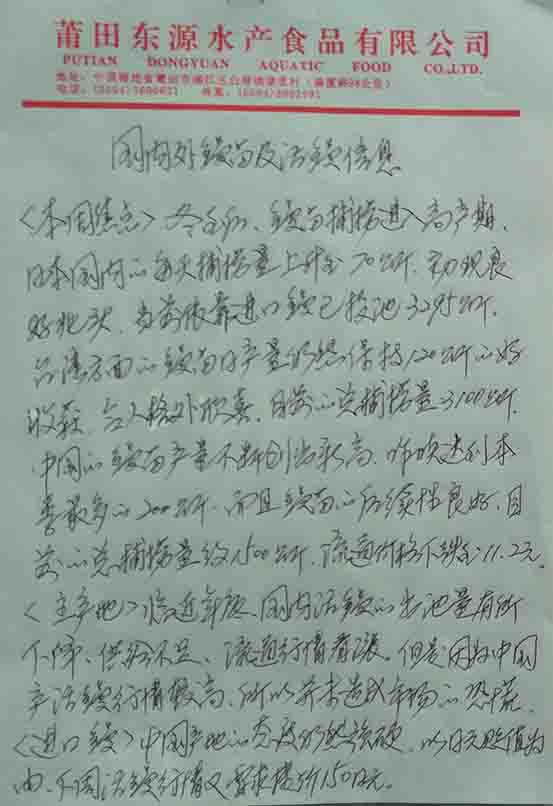 莆田东源水产食品有限公司
PUTIAN DONGYUAN AQUATIC FOOD CO.,LTD.
国内外鳗苗及活鳗信息
<本周焦点> 冬至后、鳗苗捕捞进入高产期、
日本国内的每天捕捞量上升至70公斤、初现良
好兆头、当前依靠进口鳗已投池3295公斤、
台湾方面的鳗苗日产量仍然保持120公斤的好
收获、台人格外欣喜、目前的总捕捞量3100公斤、
中国的鳗苗产量不断创出新高、昨晚达到本
季最多的200公斤、而且鳗苗的后续性良好、目
前的总捕捞量约1500公斤、流通价格下跌至11.2元。
<主产地> 临近年底、国内活鳗的出池量有所
下降、供给不足、流通行情看涨。但是因为中国
产活鳗行情较高、所以并未造成市场的恐慌。
<进口鳗> 中国产地的态度仍然强硬、以日元贬值为
由、下周活鳗行情又要求提价150日元。